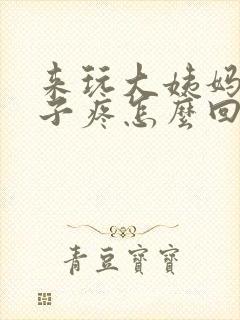 来玩大姨妈
子疼怎麼回
青豆寶寶